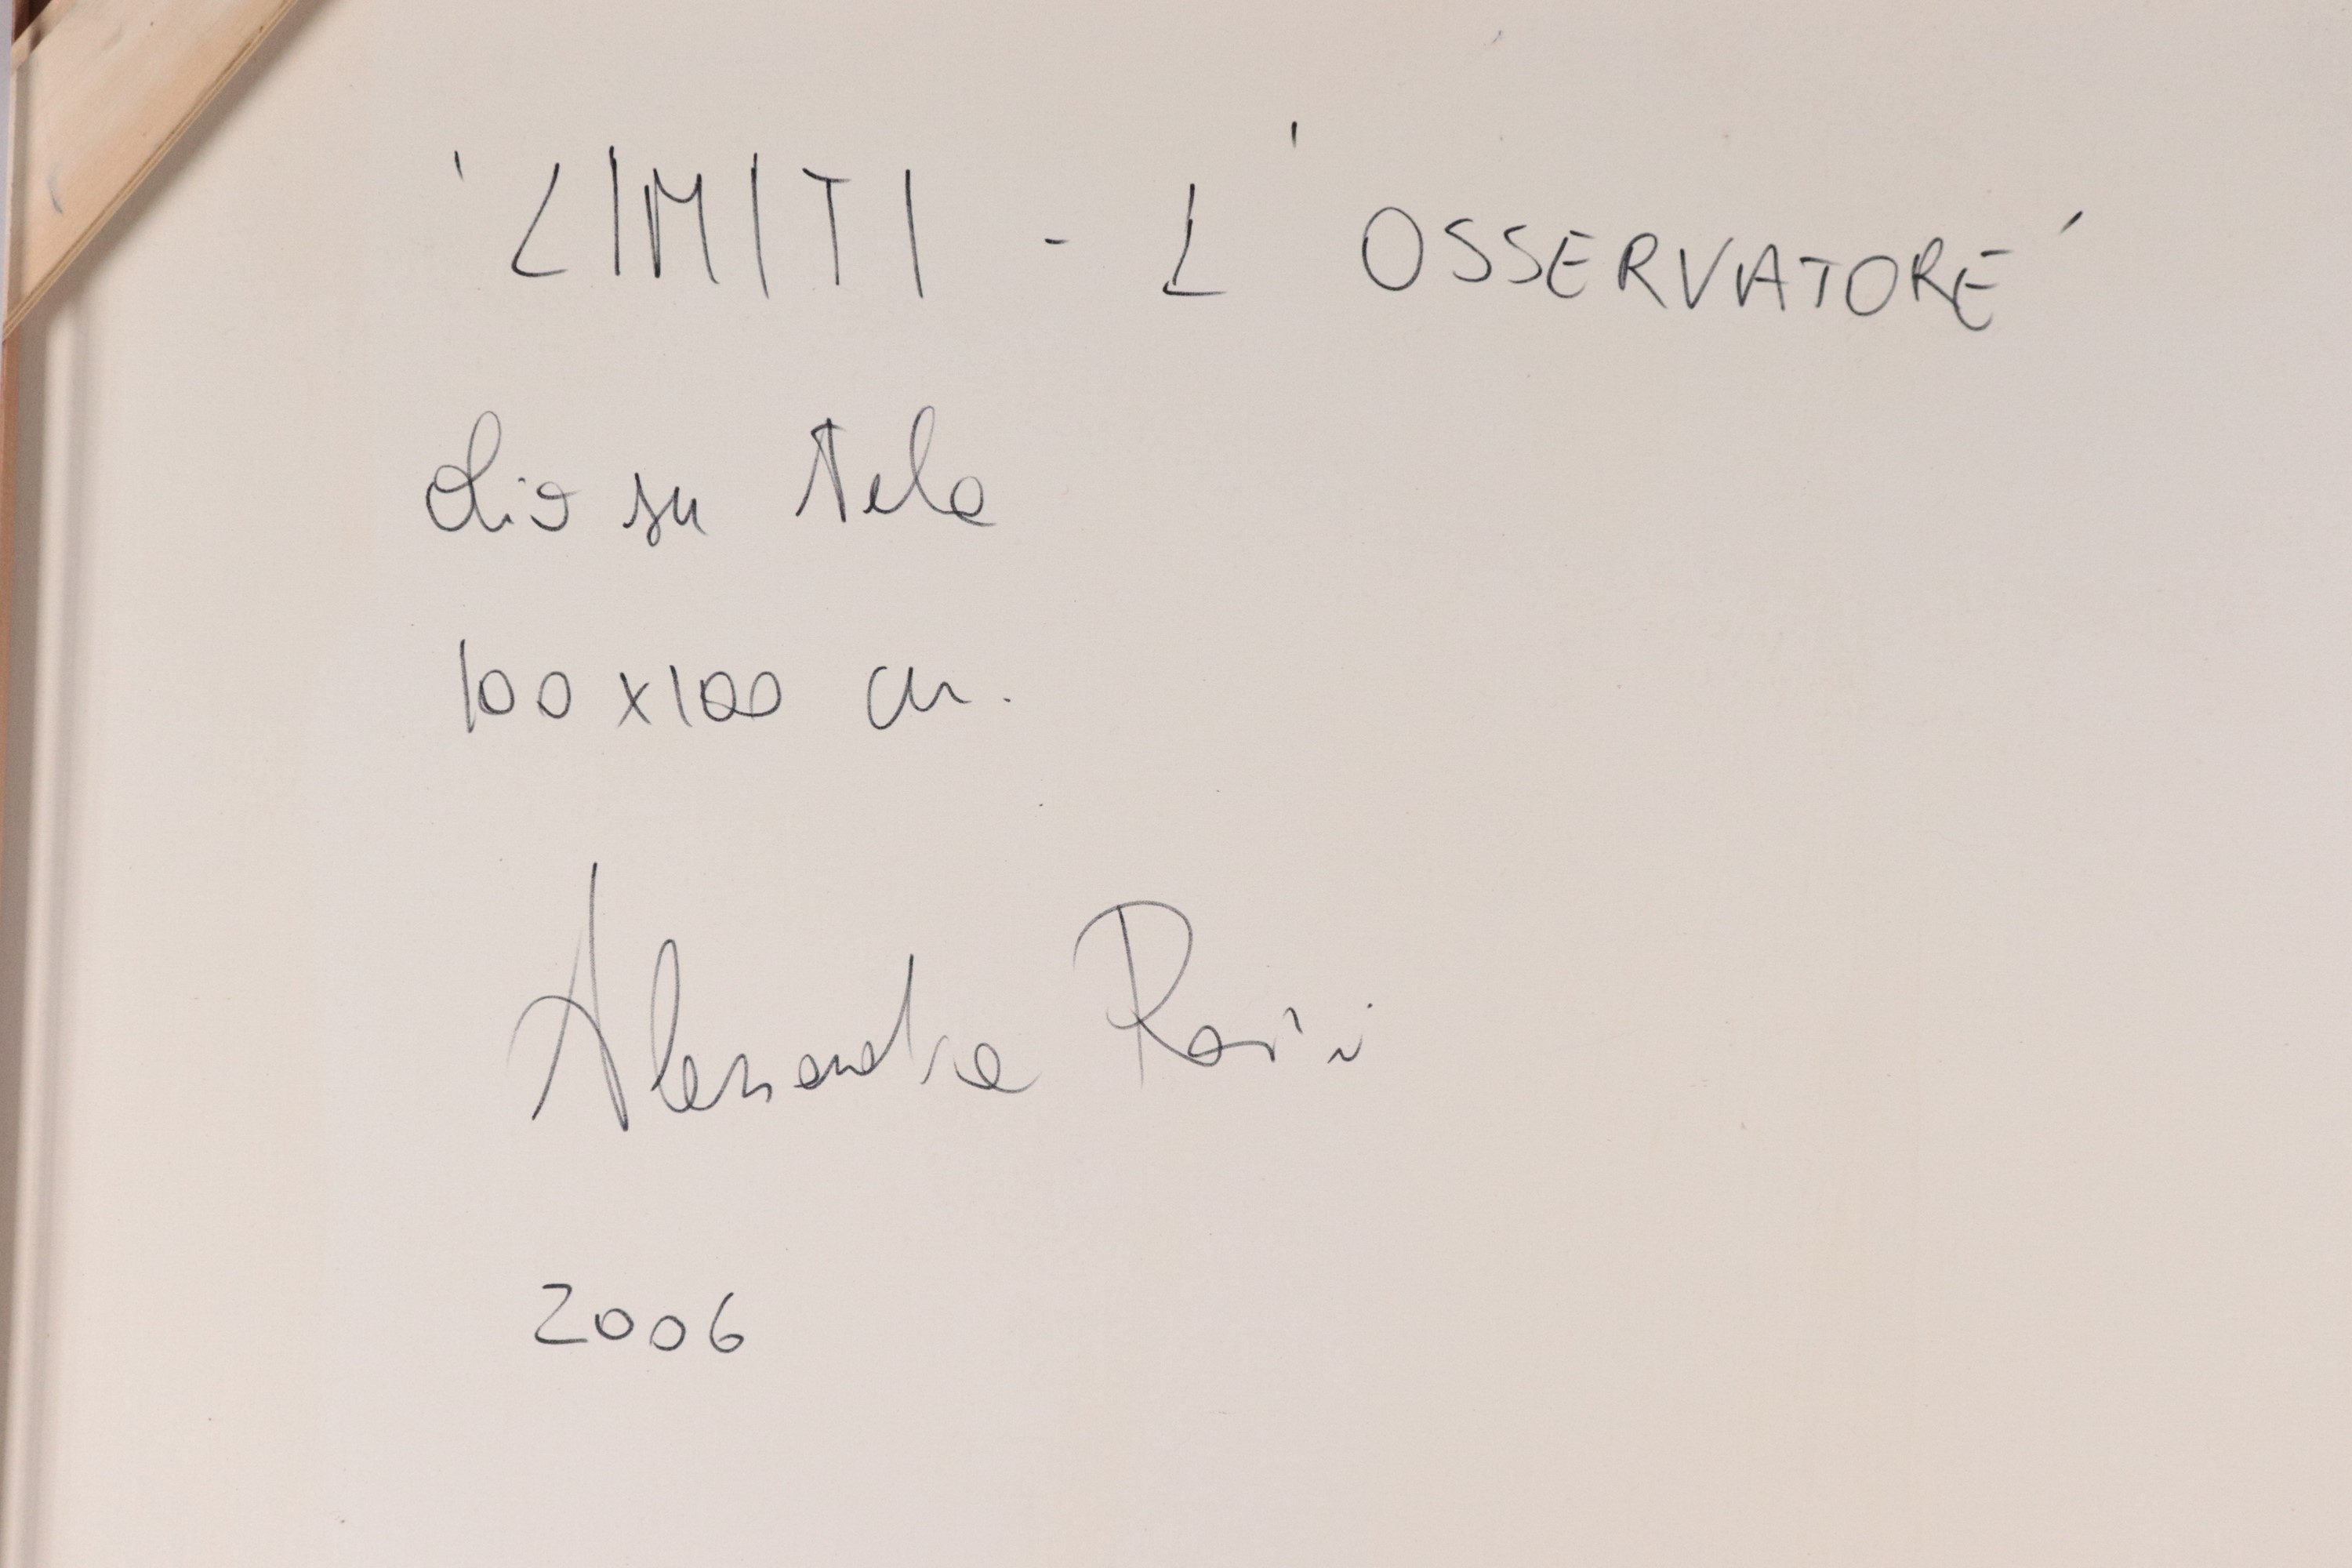 'LIMITI - L'OSSERVATORE'
olio su tela
100x100 cm.
Alessandra
2006